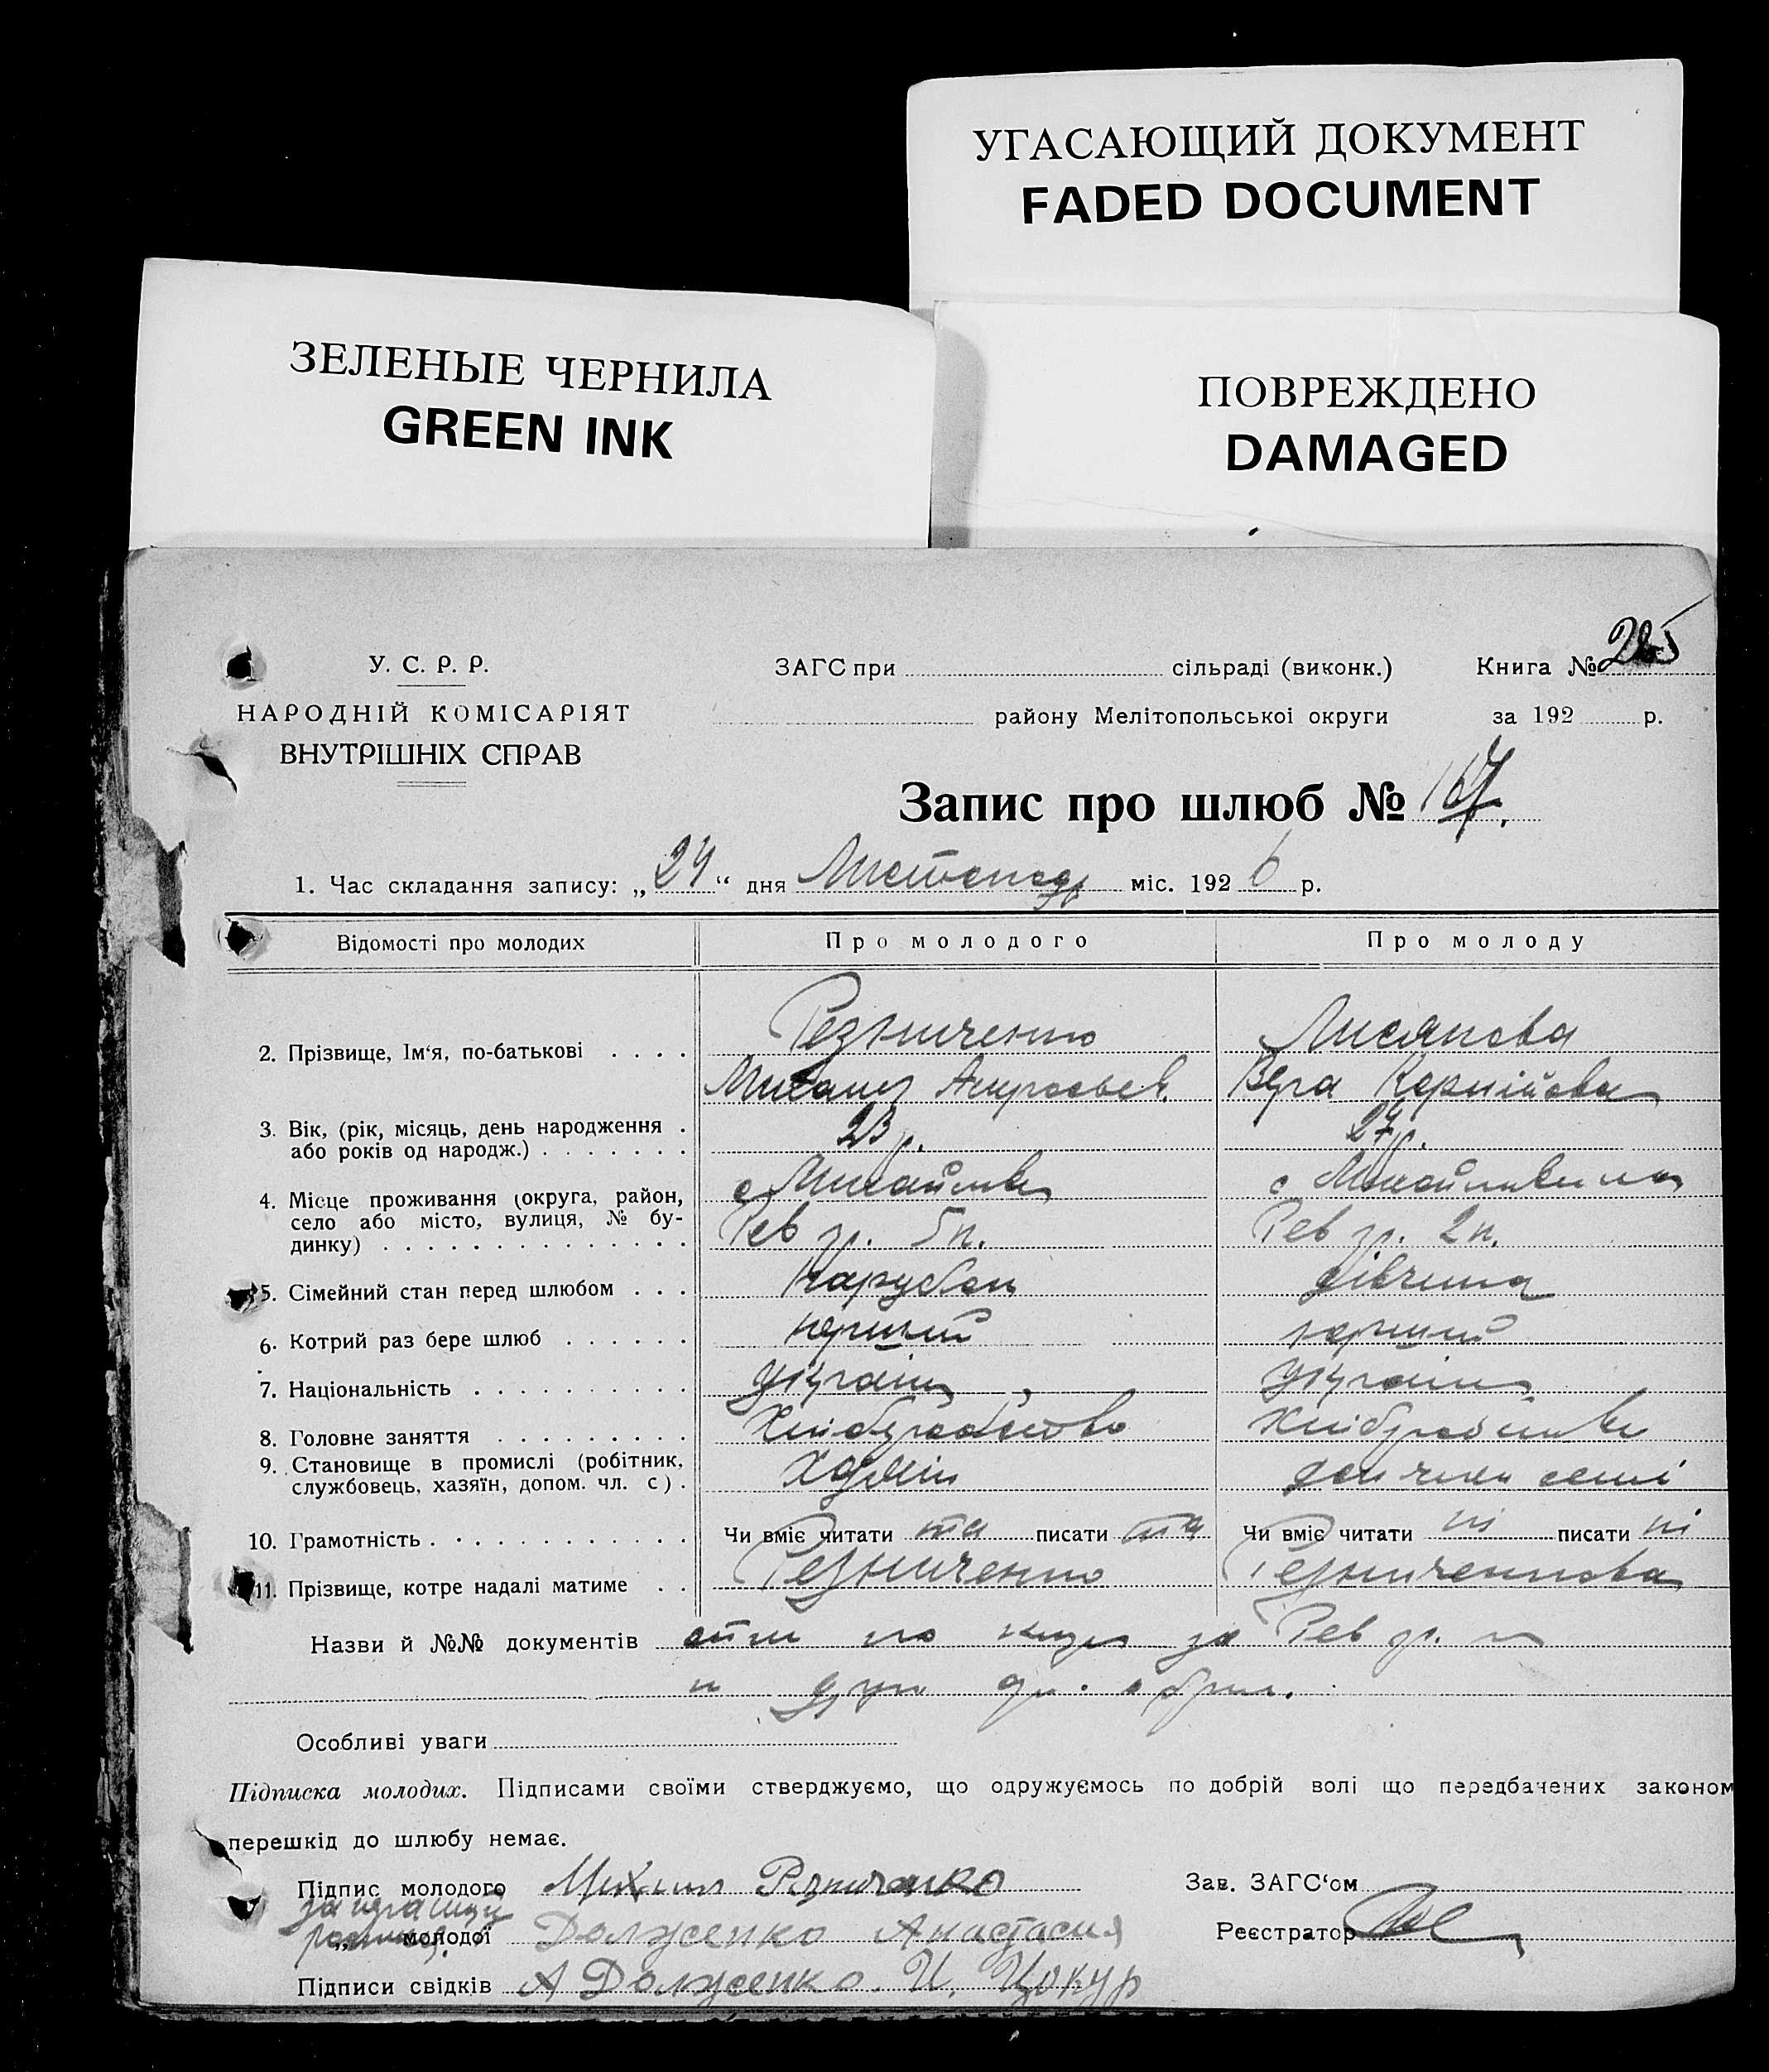 УГАСАЮЩИЙ ДОКУМЕНТ
FADED DOCUMENT
ЗЕЛЕНЫЕ ЧЕРНИЛА
GREEN INK
ПОВРЕЖДЕНО
DAMAGED
У. С. Р. Р.
НАРОДНІЙ КОМІСАРІЯТ
ВНУТРІШНІХ СПРАВ
ЗАГС при сільраді (виконк.) Книга №
району Мелітопольської округи за 192 р.
Запис про шлюб № 167.
1. Час складання запису: „24“ дня Листопада міс. 1926 р.
Відомості про молодих Про молодого Про молоду
2. Прізвище, Ім‘я, по-батькові . . . . Резниченко
Михаил Вера Корнійовна
3. Вік, (рік, місяць, день народження . 23 р.
або років од народж.) . . . . . . .
4. Місце проживання (округа, район, с Михайлівка с
село або місто, вулиця, № бу- Рев гр. 5 п. Рев гр. 2 п.
динку) . . . . . . . . . . . . . .
5. Сімейний стан перед шлюбом . . . парубок дівчина
6. Котрий раз бере шлюб . . . . . . перший перший
7. Національність . . . . . . . . . . україн. україн.
8. Головне заняття . . . . . . . . . Хліборобство хліборобство
9. Становище в промислі (робітник, Хазяїн доп член семі
службовець, хазяїн, допом. чл. с) .
10. Грамотність . . . . . . . . . . . . Чи вміє читати та писати та Чи вміє читати ні писати ні
11. Прізвище, котре надалі матиме . . Резниченко Резниченкова
Назви й №№ документів за Рев гр.
Особливі уваги
Підписка молодих. Підписами своїми стверджуємо, що одружуємось по добрій волі що передбачених законом
перешкід до шлюбу немає.
Підпис молодого Михаил Резниченко Зав. ЗАГС‘ом
„ молодої Долженко Анастасия Реєстратор
Підписи свідків А Долженко. И. Цокур